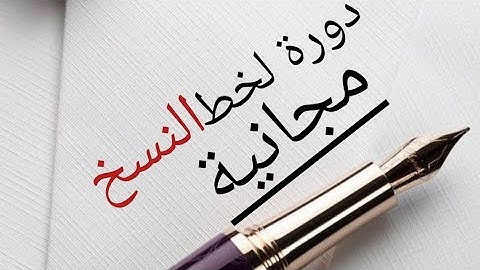 دورة لخط النسخ
مجانية